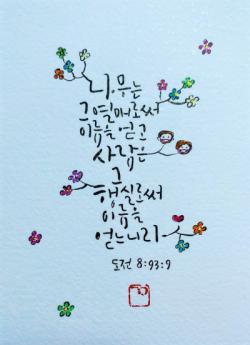 나무는
그 열매로써
이름을 얻고
사람은
그
행실로써
이름을
얻느니라
도전 8:93:9